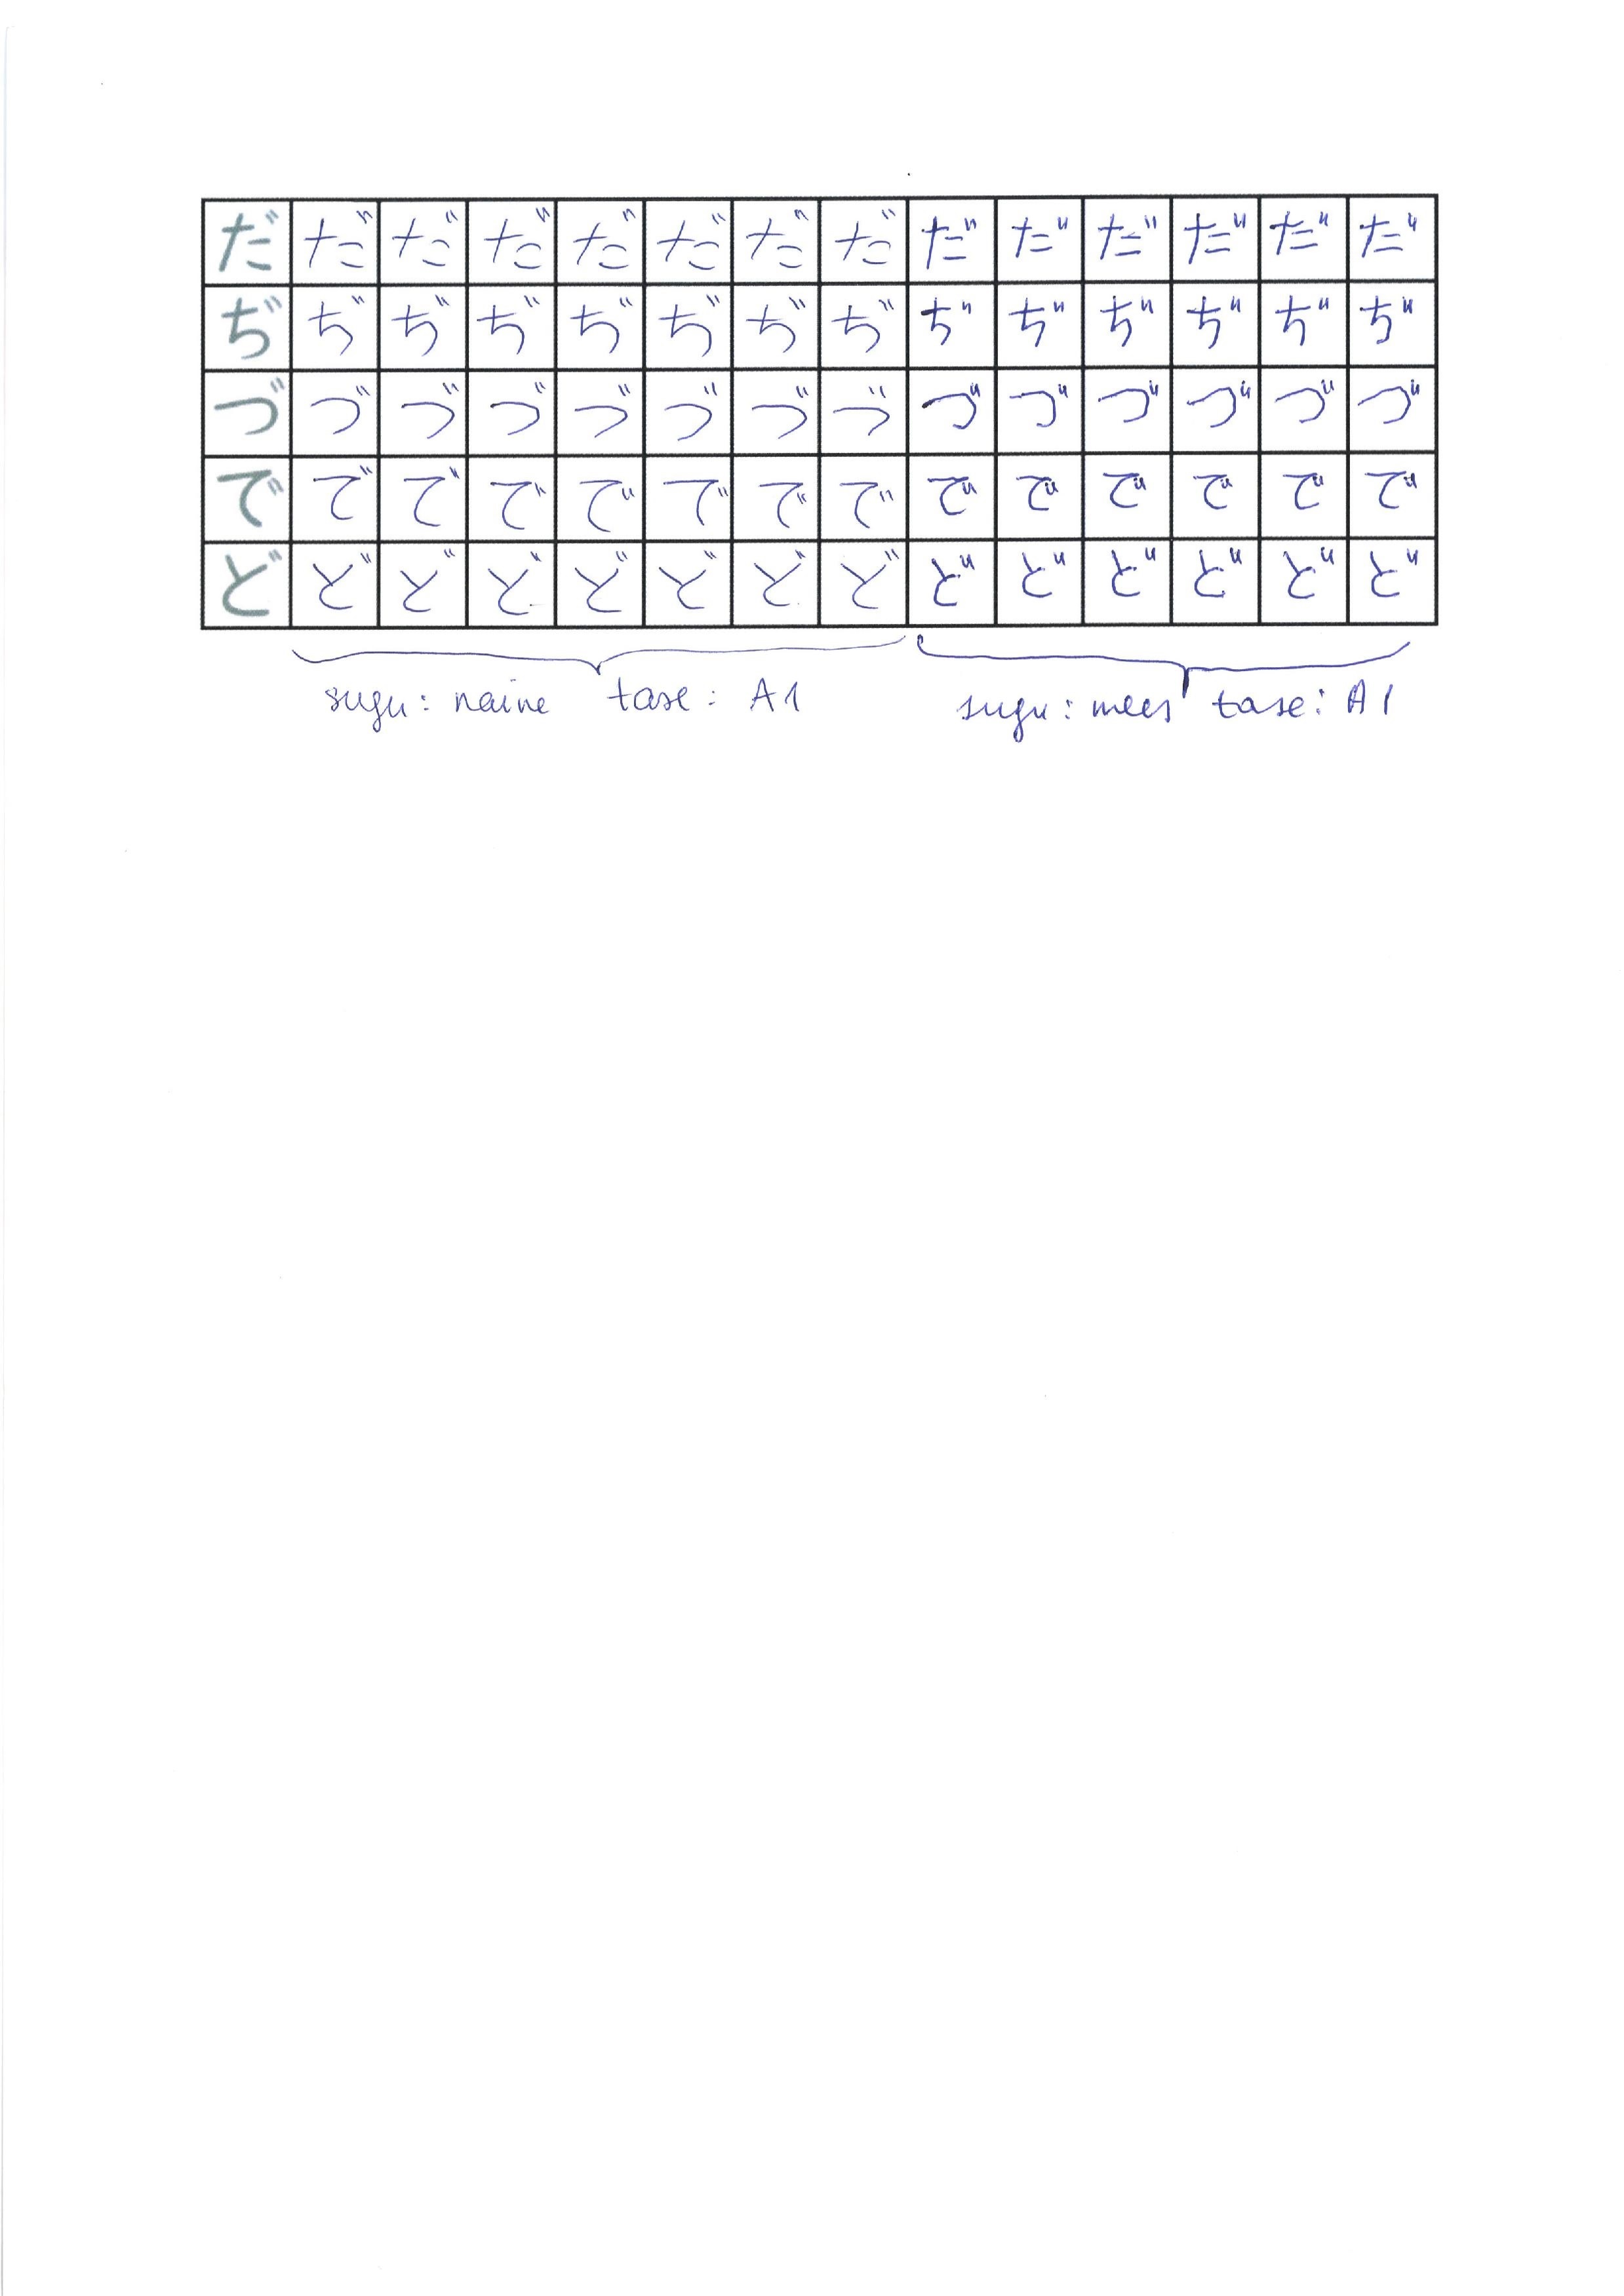 だ だ だ だ だ だ だ だ だ だ だ だ だ だ
ぢ ぢ ぢ ぢ ぢ ぢ ぢ ぢ ぢ ぢ ぢ ぢ ぢ ぢ
づ づ づ づ づ づ づ づ づ づ づ づ づ づ
で で で で で で で で で で で で で で
ど ど ど ど ど ど ど ど ど ど ど ど ど ど
sugu: naine tase: A1 sugu: mees tase: A1